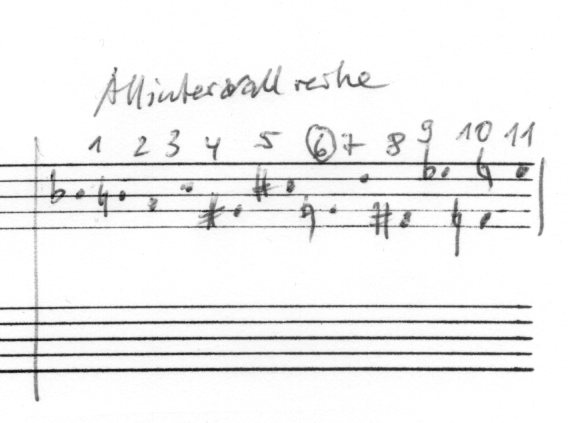 Allintervallreihe
1 2 3 4 5 6 7 8 9 10 11